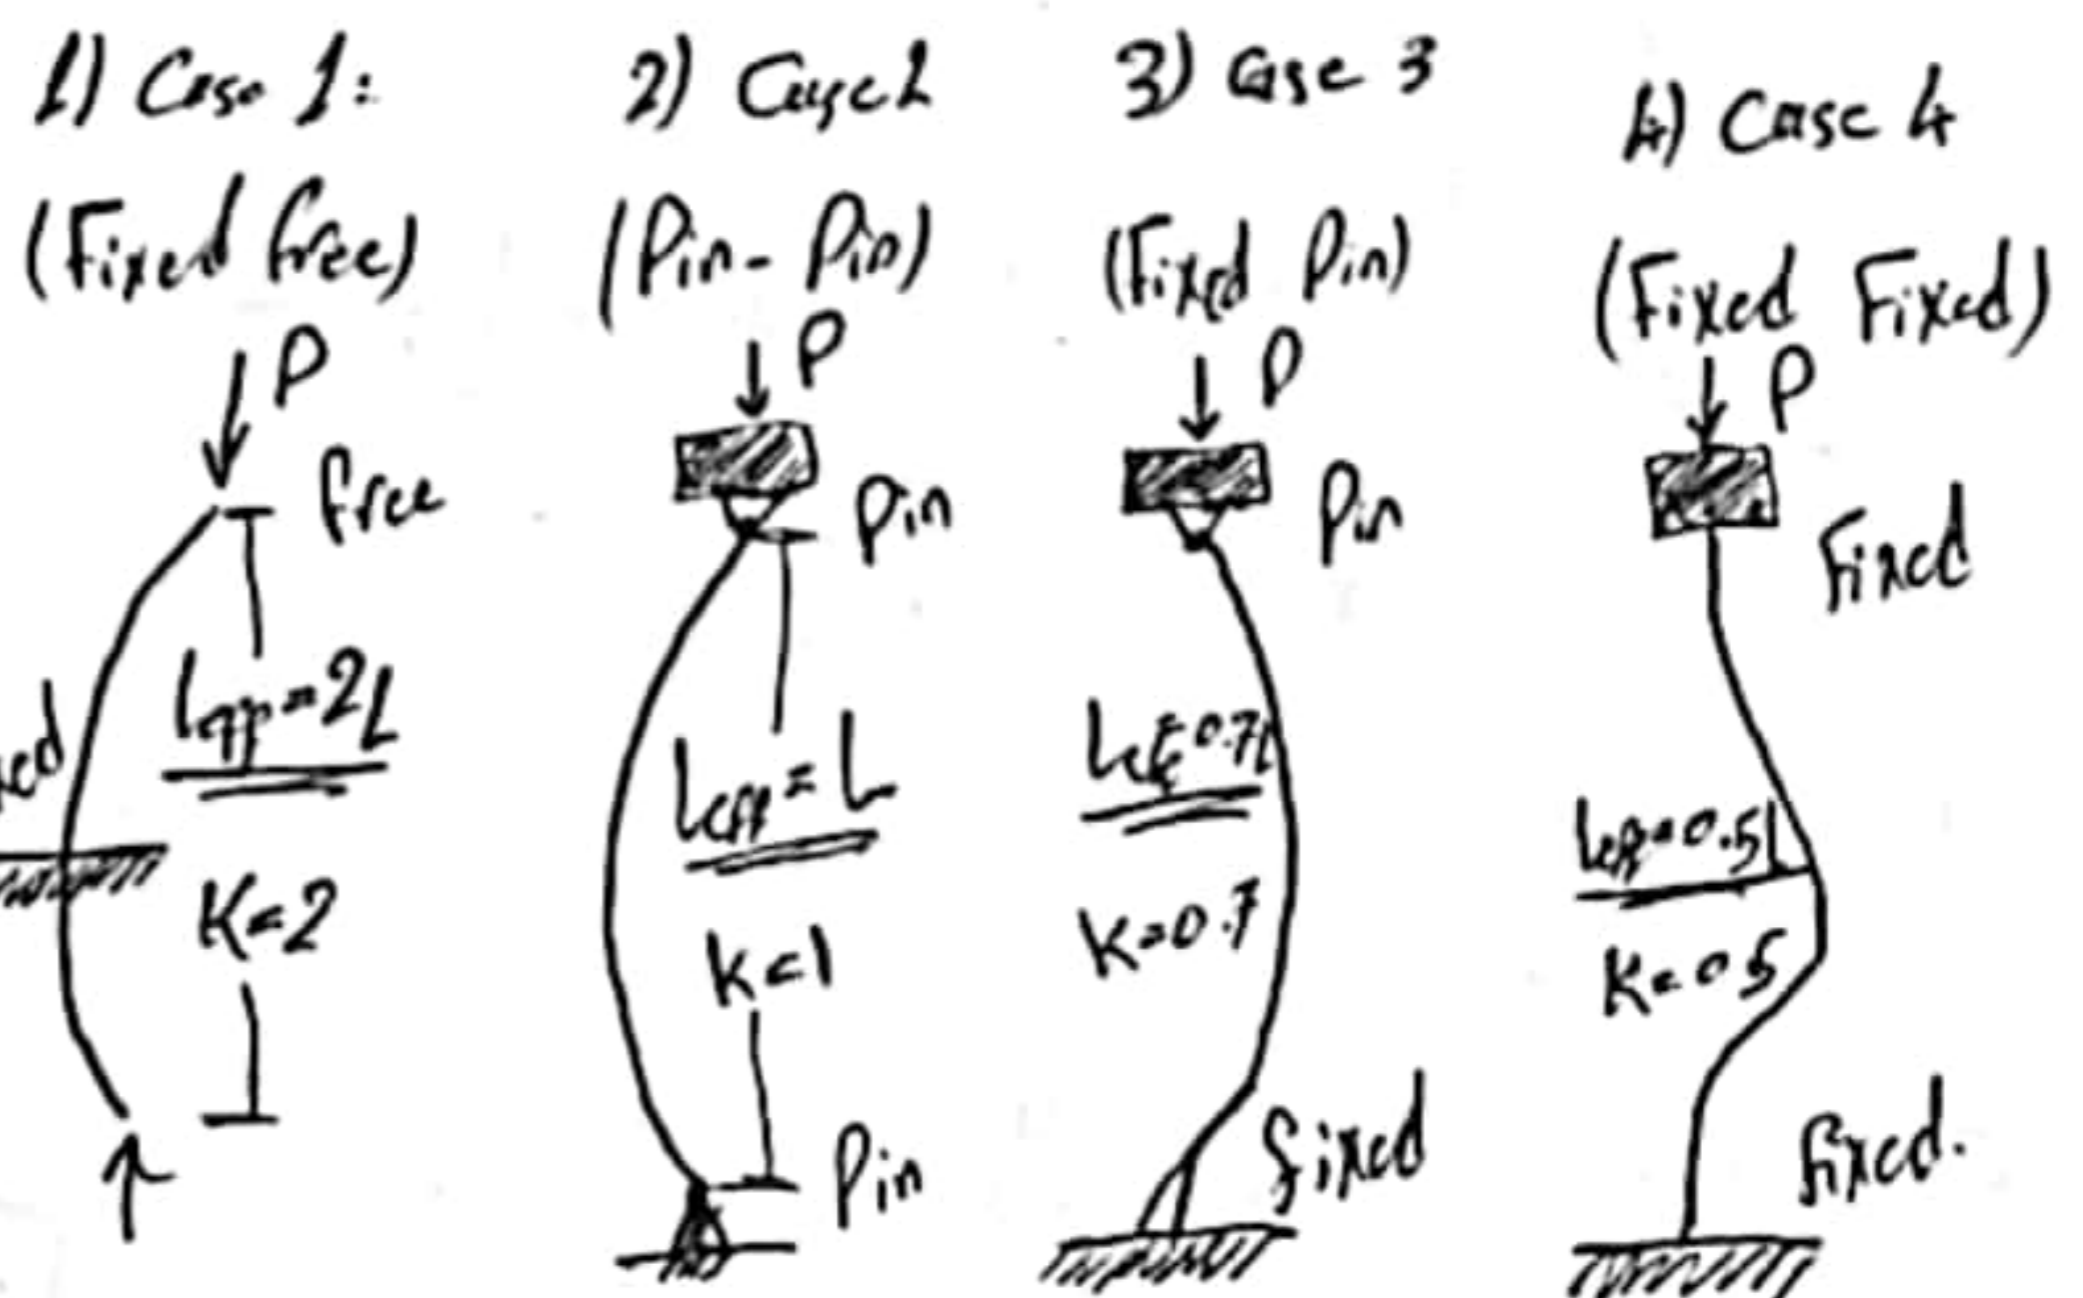 1) Case 1:
(Fixed free)
P
free
xed
Leff=2L
K=2
2) Case 2
(Pin-Pin)
P
Pin
Leff=L
K=1
Pin
3) Case 3
(Fixed Pin)
P
Pin
Leff=0.7L
K=0.7
fixed
4) Case 4
(Fixed Fixed)
P
Fixed
Leff=0.5L
K=0.5
fixed.